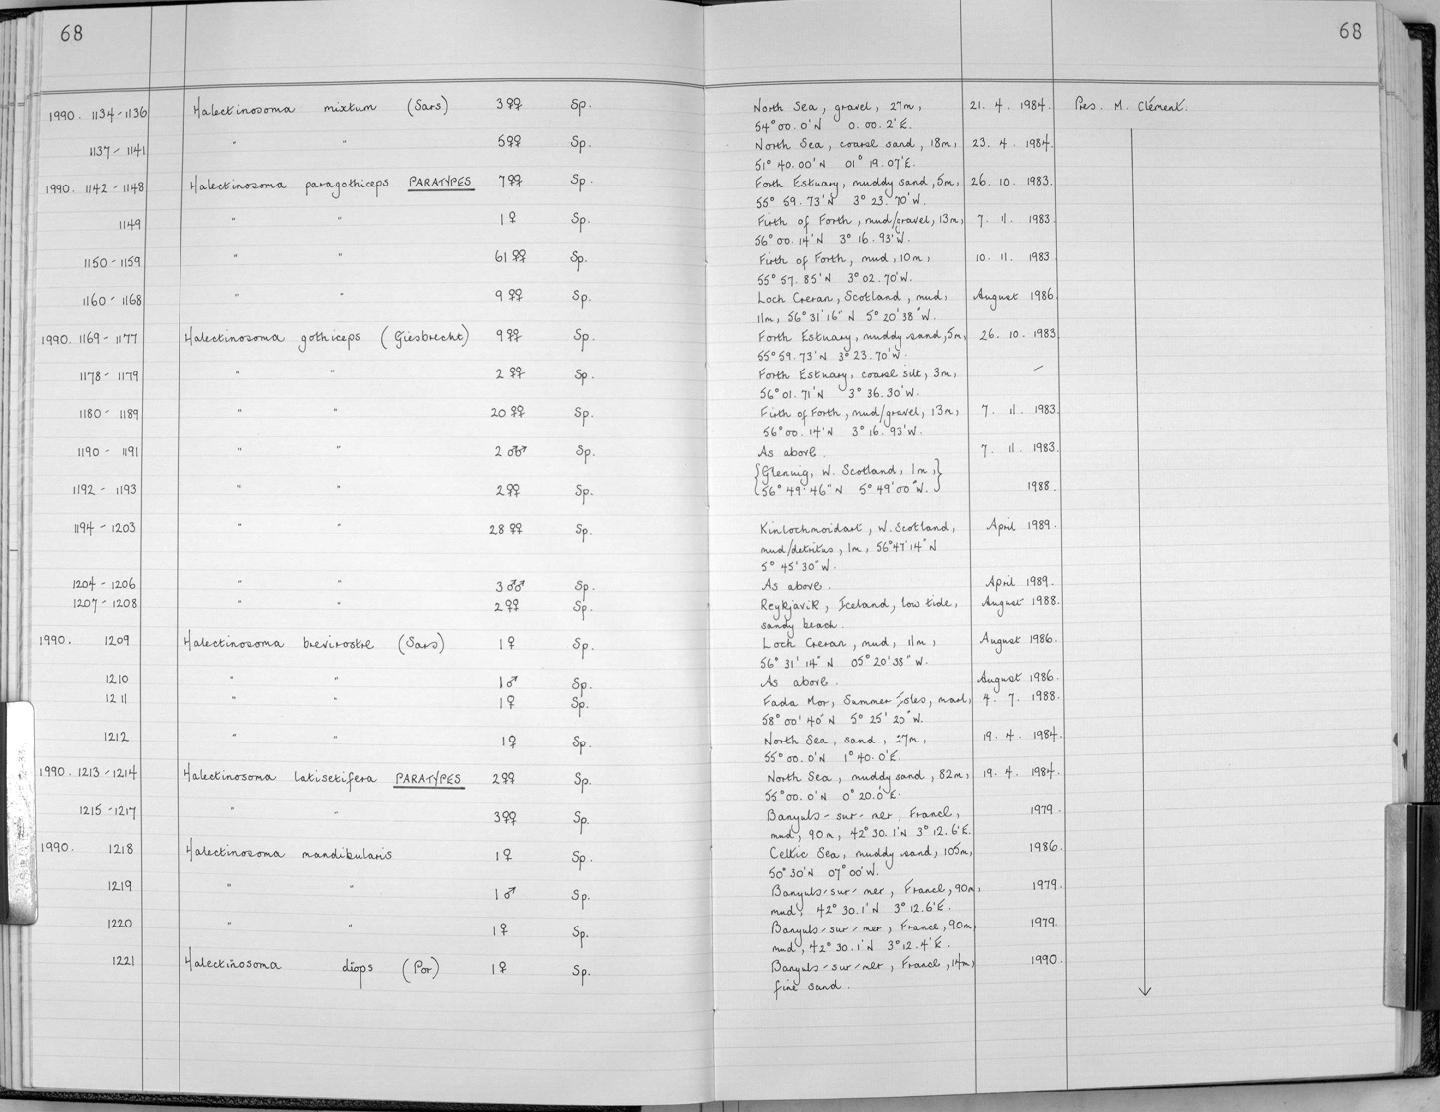 68 68
1990. 1134-1136 Halectinosoma mixtum (Sars) 3♀♀ Sp. North Sea, gravel, 27m, 21. 4. 1984. Pres. M. Clément.
54°00.0'N 0.00.2'E.
1137-1141 " " 5♀♀ Sp. North Sea, coarse sand, 18m, 23. 4. 1984.
51° 40.00'N 01° 19.07'E.
1990. 1142-1148 Halectinosoma paragothiceps PARATYPES 7♀♀ Sp. Forth Estuary, muddy sand, 5m, 26. 10. 1983.
55° 59.73'N 3° 23.70'W.
1149 " " 1♀ Sp. Firth of Forth, mud/gravel, 13m, 7. 11. 1983
56°00.14'N 3° 16.93'W.
1150-1159 " " 61♀♀ Sp. Firth of Forth, mud, 10m, 10. 11. 1983
55° 57.85'N 3° 02.70'W.
1160-1168 " " 9♀♀ Sp. Loch Creran, Scotland, mud, August 1986
11m, 56°31'16"N 5°20'38"W.
1990. 1169-1177 Halectinosoma gothiceps (Giesbrecht) 9♀♀ Sp. Forth Estuary, muddy sand, 5m, 26. 10. 1983
55°59.73'N 3°23.70'W.
1178-1179 " " 2♀♀ Sp. Forth Estuary, coarse silt, 3m, -
56°01.71'N 3° 36.30'W.
1180-1189 " " 20♀♀ Sp. Firth of Forth, mud/gravel, 13m, 7. 11. 1983.
56°00.14'N 3° 16.93'W.
1190-1191 " " 2♂♂ Sp. As above. 7. 11. 1983.
{Glenuig, W. Scotland, 1m,}
1192-1193 " " 2♀♀ Sp. 56°49'46"N 5°49'00"W. 1988.
1194-1203 " " 28♀♀ Sp. Kinlochmoidart, W. Scotland, April 1989.
mud/detritus, 1m, 56°47'14"N
5°45'30"W.
1204-1206 " " 3♂♂ Sp. As above. April 1989.
1207-1208 " " 2♀♀ Sp. Reykjavik, Iceland, low tide, August 1988.
sandy beach.
1990. 1209 Halectinosoma brevirostre (Sars) 1♀ Sp. Loch Creran, mud, 11m, August 1986.
56° 31' 14" N 05°20'38" W.
1210 " " 1♂ Sp. As above. August 1986.
1211 " " 1♀ Sp. Fada Mor, Summer Isles, maerl, 4. 7. 1988.
58°00'40"N 5° 25' W.
1212 " " 1♀ Sp. North Sea, sand, 19. 4. 1984.
55°00.0'N 1°40.0'E.
1990. 1213-1214 Halectinosoma latisetifera PARATYPES 2♀♀ Sp. North Sea, muddy sand, 82m, 19. 4. 1984.
55°00.0'N 0°20.0'E.
1215-1217 " " 3♀♀ Sp. Banyuls-sur-mer, France, 1979.
mud, 90m, 42°30.1'N 3°12.6'E.
1990. 1218 Halectinosoma mandibularis 1♀ Sp. Celtic Sea, muddy sand, 105m, 1986.
50°30'N 07°00'W.
1219 " " 1♂ Sp. Banyuls-sur-mer, France, 90m, 1979.
mud, 42°30.1'N 3°12.6'E.
1220 " " 1♀ Sp. Banyuls-sur-mer, France, 90m, 1979.
mud, 42°30.1'N 3°12.4'E.
1221 Halectinosoma diops (Por) 1♀ Sp. Banyuls-sur-mer, France, 14m, 1990.
fine sand.